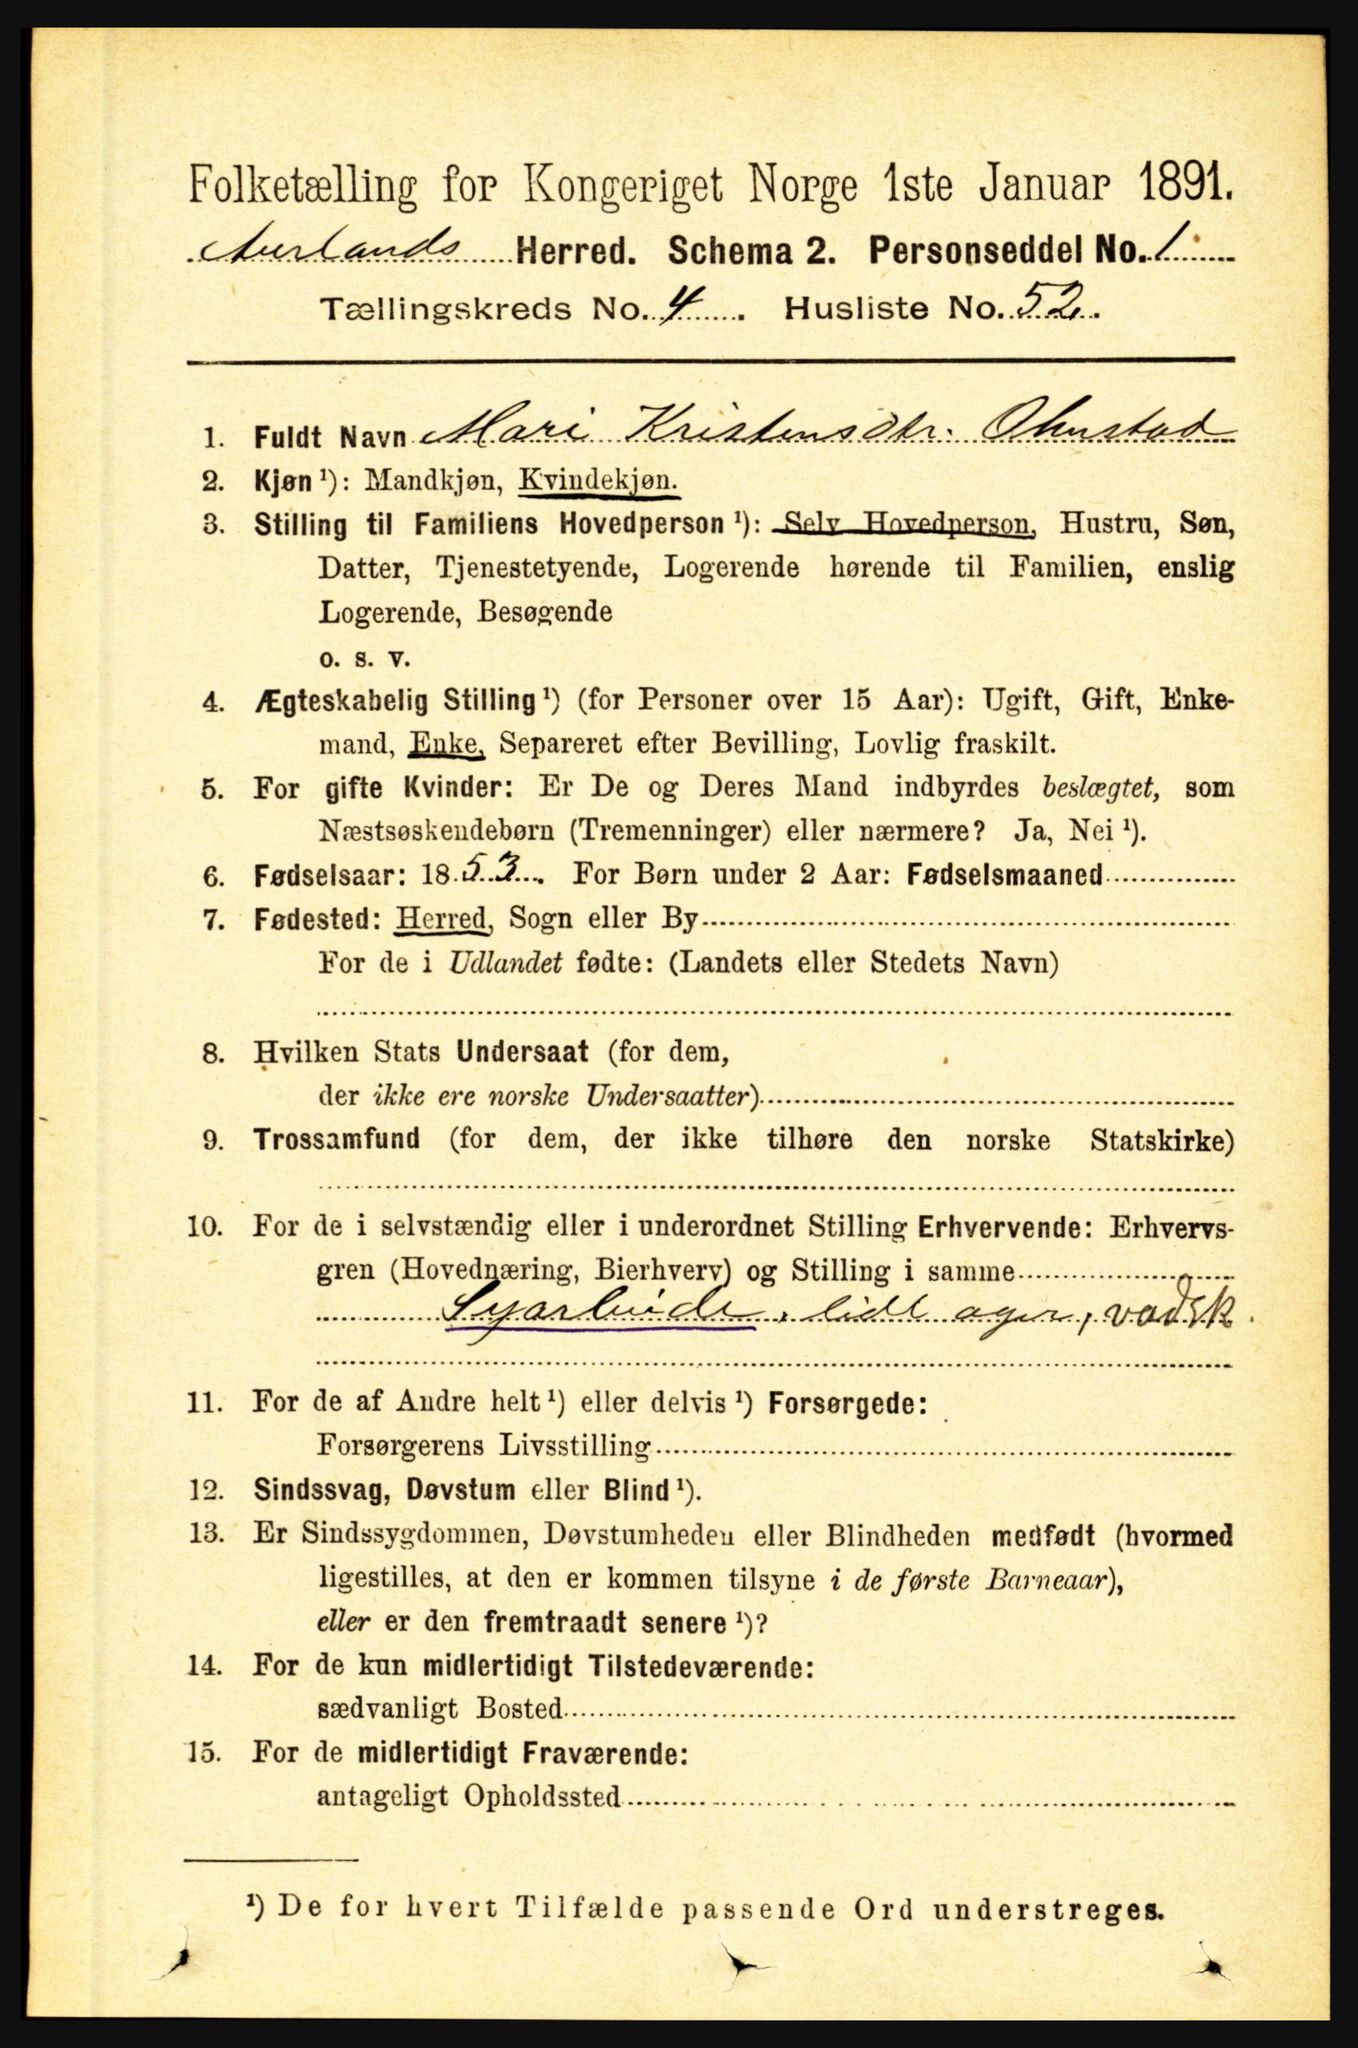 Folketælling for Kongeriget Norge 1ste Januar 1891.
Aurlands Herred. Schema 2. Personseddel No. 1
Tællingskreds No. 4. Husliste No. 52.
1. Fuldt Navn Mari Kristensdtr. Ohnstad
2. Kjøn ¹): Mandkjøn, Kvindekjøn.
3. Stilling til Familiens Hovedperson ¹): Selv Hovedperson, Hustru, Søn,
Datter, Tjenestetyende, Logerende hørende til Familien, enslig
Logerende, Besøgende
o. s. v.
4. Ægteskabelig Stilling ¹) (for Personer over 15 Aar): Ugift, Gift, Enke-
mand, Enke, Separeret efter Bevilling, Lovlig fraskilt.
5. For gifte Kvinder: Er De og Deres Mand indbyrdes beslægtet, som
Næstsøskendebørn (Tremenninger) eller nærmere? Ja, Nei ¹).
6. Fødselsaar: 1853. For Børn under 2 Aar: Fødselsmaaned
7. Fødested: Herred, Sogn eller By
For de i Udlandet fødte: (Landets eller Stedets Navn)
8. Hvilken Stats Undersaat (for dem,
der ikke ere norske Undersaatter)
9. Trossamfund (for dem, der ikke tilhøre den norske Statskirke)
10. For de i selvstændig eller i underordnet Stilling Erhvervende: Erhvervs-
gren (Hovednæring, Bierhverv) og Stilling i samme
lidt ager,
11. For de af Andre helt ¹) eller delvis ¹) Forsørgede:
Forsørgerens Livsstilling
12. Sindssvag, Døvstum eller Blind ¹).
13. Er Sindssygdommen, Døvstumheden eller Blindheden medfødt (hvormed
ligestilles, at den er kommen tilsyne i de første Barneaar),
eller er den fremtraadt senere ¹)?
14. For de kun midlertidigt Tilstedeværende:
sædvanligt Bosted
15. For de midlertidigt Fraværende:
antageligt Opholdssted
¹) De for hvert Tilfælde passende Ord understreges.